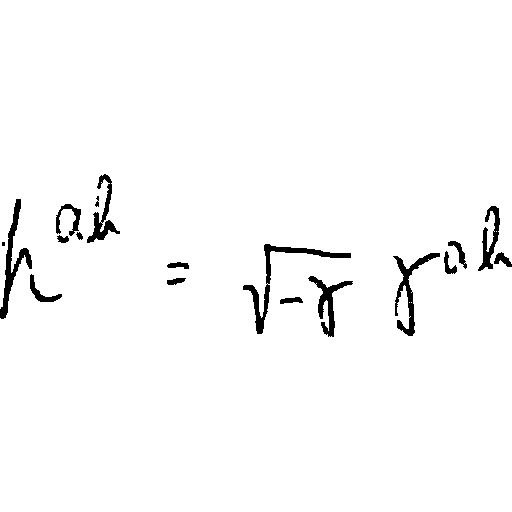 h^{ab} = \sqrt{-\gamma} \gamma^{ab}